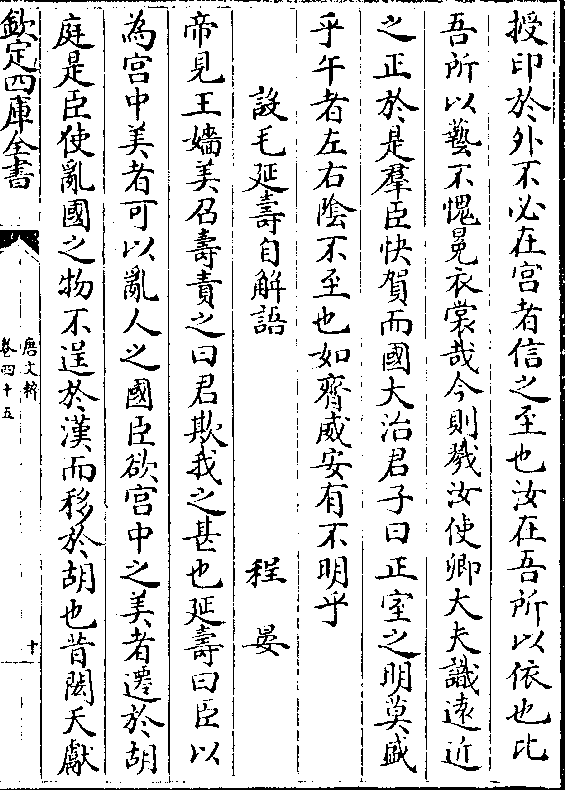 授印於外不必在宫者信之至也汝在吾所以依也比
吾所以藝不愧冕衣裳哉今則戮汝使卿大夫識逺近
之正於是羣臣快賀而國大治君子曰正室之明莫盛
乎午者左右陰不至也如齊威安有不明乎
設毛延壽自解語 程晏
帝見王嬙美召壽責之曰君欺我之甚也延壽曰臣以
為宫中美者可以亂人之國臣欲宫中之美者遷於胡
庭是臣使亂國之物不逞於漢而移於胡也昔閎夭獻
欽定四庫全書
唐文粹
卷四十五
十